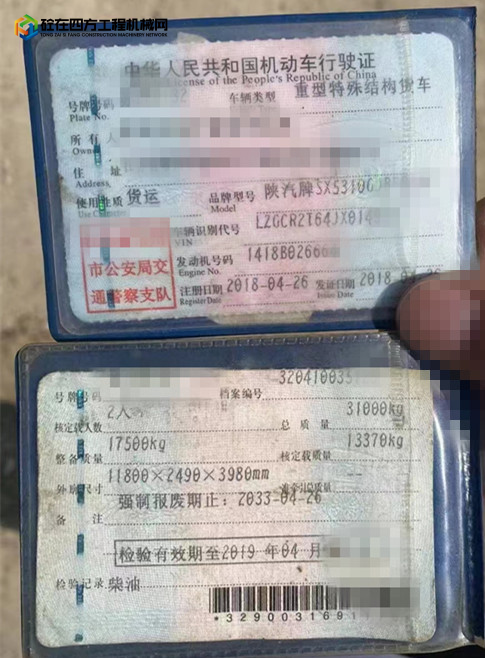 砼在四方工程机械网
TONG ZAI SI FANG CONSTRUCTION MACHINERY NETWORK
中华人民共和国机动车行驶证
License of the People's Republic of China
号牌号码 车辆类型 重型特殊结构货车
Plate No.
所有人
Owner
住址
Address
使用性质 货运 品牌型号 陕汽牌SX5310G
Use Character Model
车辆识别代号 LZGCR2T64JX014
VIN
市公安局交
通警察支队
发动机号码 1418B02666
Engine No.
注册日期 2018-04-26 发证日期 2018-04-26
Register Date Issue Date
号牌号码 档案编号 320410035
核定载人数 2人 总质量 31000kg
整备质量 17500kg 核定载质量 13370kg
外廓尺寸 11800×2490×3980mm 准牵引总质量 --
备注 强制报废期止:2033-04-26
检验有效期至2019年04月
检验记录 柴油
*3290031691